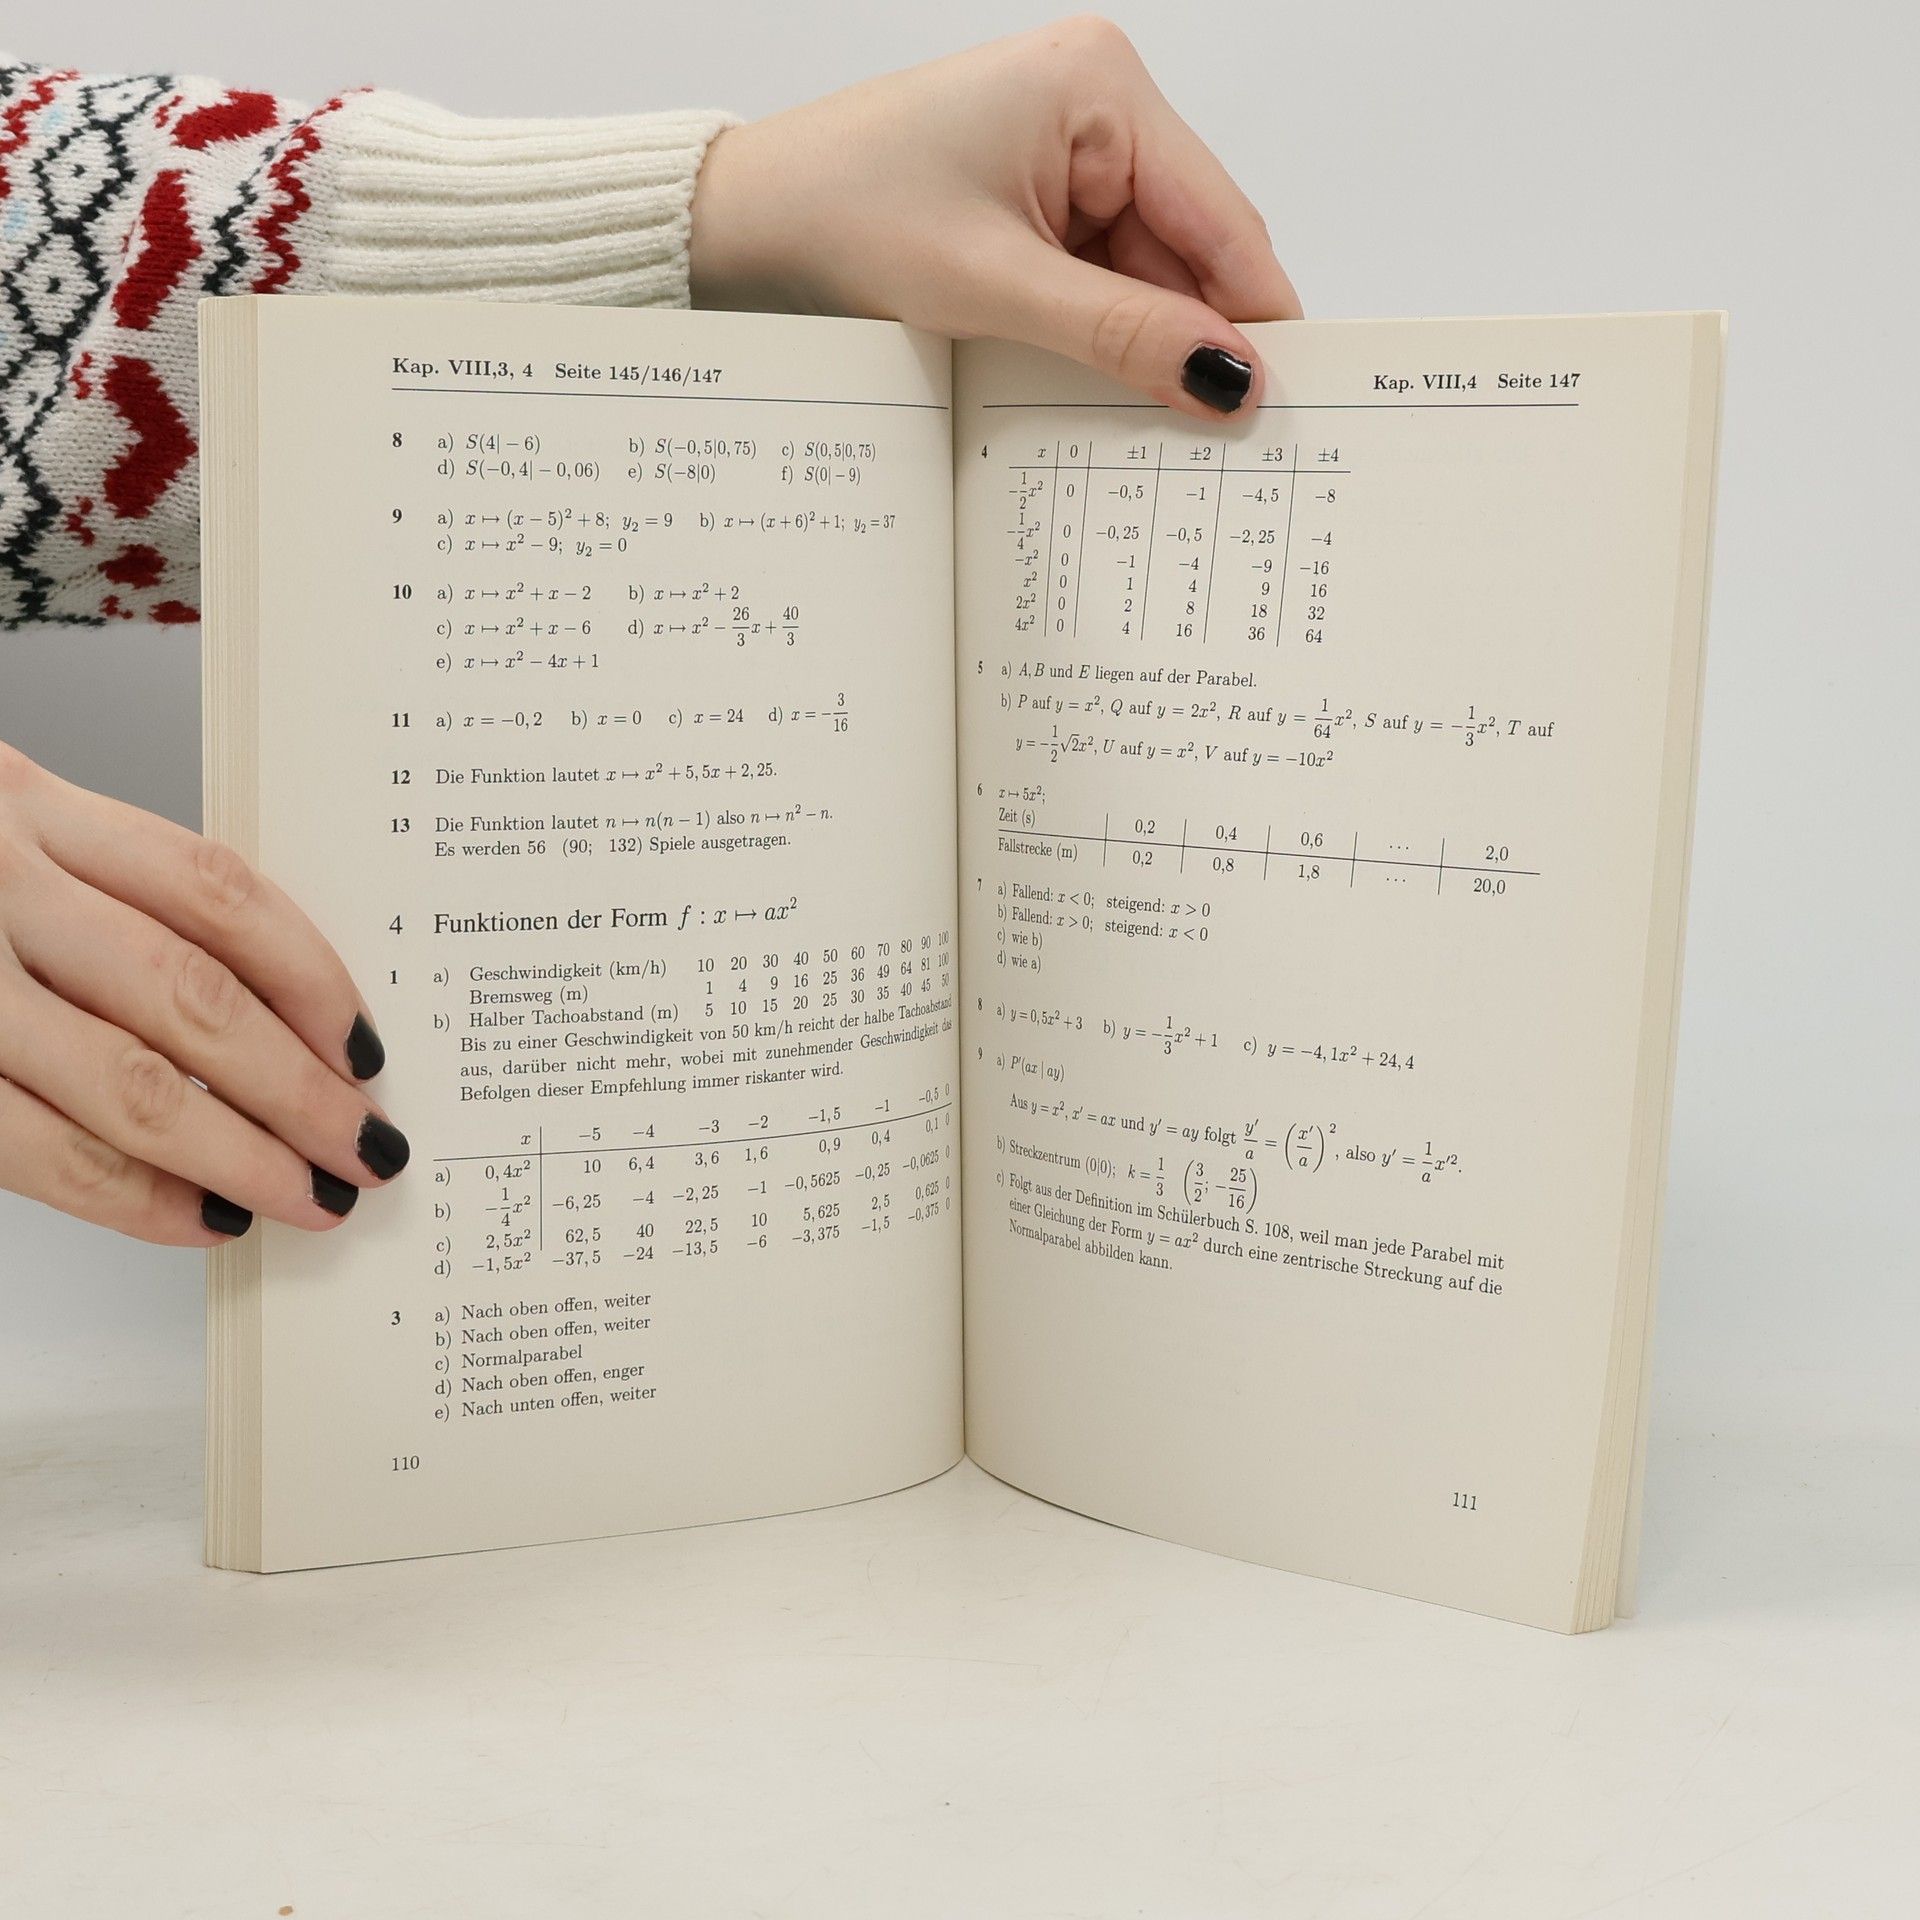 Kap. VIII,3, 4 Seite 145/146/147
8 a) S(4| − 6) b) S(−0,5|0,75) c) S(0,5|0,75)
d) S(−0,4| − 0,06) e) S(−8|0) f) S(0| − 9)
9 a) x ↦ (x − 5)² + 8; y₂ = 9 b) x ↦ (x + 6)² + 1; y₂ = 37
c) x ↦ x² − 9; y₂ = 0
10 a) x ↦ x² + x − 2 b) x ↦ x² + 2
c) x ↦ x² + x − 6 d) x ↦ x² − 26/3 x + 40/3
e) x ↦ x² − 4x + 1
11 a) x = −0,2 b) x = 0 c) x = 24 d) x = −3/16
12 Die Funktion lautet x ↦ x² + 5,5x + 2,25.
13 Die Funktion lautet n ↦ n(n − 1) also n ↦ n² − n.
Es werden 56 (90; 132) Spiele ausgetragen.
4 Funktionen der Form f : x ↦ ax²
1 a) Geschwindigkeit (km/h) 10 20 30 40 50 60 70 80 90 100
Bremsweg (m) 1 4 9 16 25 36 49 64 81 100
b) Halber Tachoabstand (m) 5 10 15 20 25 30 35 40 45 50
Bis zu einer Geschwindigkeit von 50 km/h reicht der halbe Tachoabstand
aus, darüber nicht mehr, wobei mit zunehmender Geschwindigkeit das
Befolgen dieser Empfehlung immer riskanter wird.
x −5 −4 −3 −2 −1,5 −1 −0,5 0
a) 0,4x² 10 6,4 3,6 1,6 0,9 0,4 0,1 0
b) −1/4 x² −6,25 −4 −2,25 −1 −0,5625 −0,25 −0,0625 0
c) 2,5x² 62,5 40 22,5 10 5,625 2,5 0,625 0
d) −1,5x² −37,5 −24 −13,5 −6 −3,375 −1,5 −0,375 0
3 a) Nach oben offen, weiter
b) Nach oben offen, weiter
c) Normalparabel
d) Nach oben offen, enger
e) Nach unten offen, weiter
110
Kap. VIII,4 Seite 147
4 x 0 ±1 ±2 ±3 ±4
−1/2 x² 0 −0,5 −1 −4,5 −8
−1/4 x² 0 −0,25 −0,5 −2,25 −4
−x² 0 −1 −4 −9 −16
x² 0 1 4 9 16
2x² 0 2 8 18 32
4x² 0 4 16 36 64
5 a) A, B und E liegen auf der Parabel.
b) P auf y = x², Q auf y = 2x², R auf y = 1/64 x², S auf y = −1/3 x², T auf
y = −1/2 √2x², U auf y = x², V auf y = −10x²
6 x ↦ 5x²;
Zeit (s) 0,2 0,4 0,6 ... 2,0
Fallstrecke (m) 0,2 0,8 1,8 ... 20,0
7 a) Fallend: x < 0; steigend: x > 0
b) Fallend: x > 0; steigend: x < 0
c) wie b)
d) wie a)
8 a) y = 0,5x² + 3 b) y = −1/3 x² + 1 c) y = −4,1x² + 24,4
9 a) P′(ax | ay)
Aus y = x², x′ = ax und y′ = ay folgt y′/a = (x′/a)², also y′ = 1/a x′².
b) Streckzentrum (0|0); k = 1/3 (3/2; −25/16)
c) Folgt aus der Definition im Schülerbuch S. 108, weil man jede Parabel mit
einer Gleichung der Form y = ax² durch eine zentrische Streckung auf die
Normalparabel abbilden kann.
111